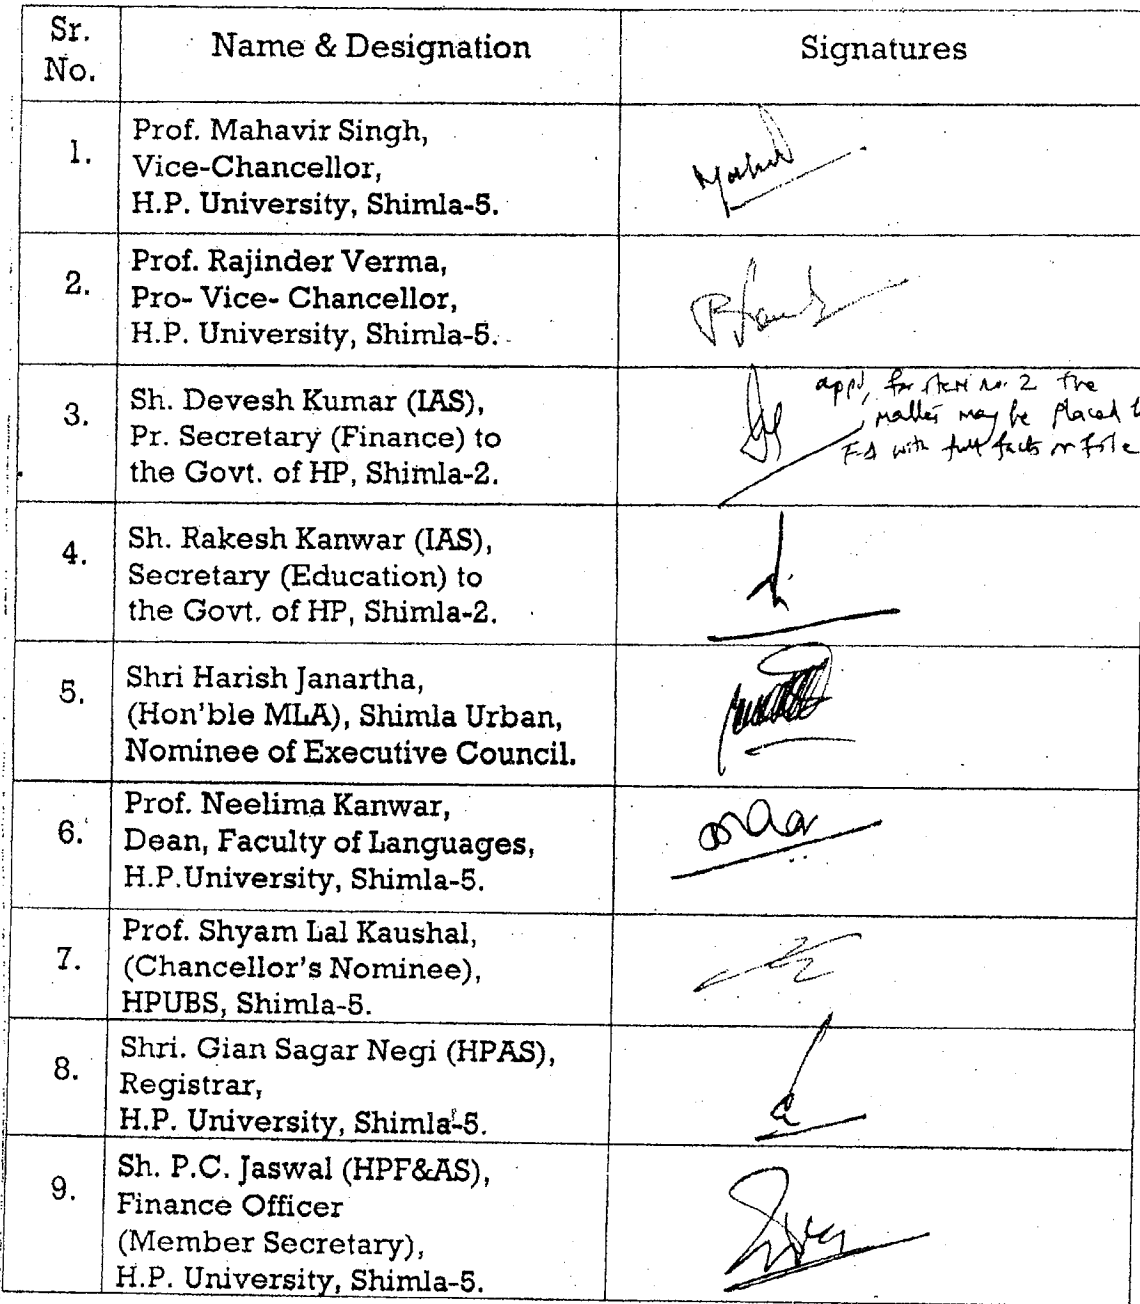 Sr. No. Name & Designation Signatures
1. Prof. Mahavir Singh,
Vice-Chancellor,
H.P. University, Shimla-5.
2. Prof. Rajinder Verma,
Pro- Vice- Chancellor,
H.P. University, Shimla-5.
3. Sh. Devesh Kumar (IAS),
Pr. Secretary (Finance) to
the Govt. of HP, Shimla-2.
for item no. 2 the
matter may be placed
with full facts on file
4. Sh. Rakesh Kanwar (IAS),
Secretary (Education) to
the Govt. of HP, Shimla-2.
5. Shri Harish Janartha,
(Hon'ble MLA), Shimla Urban,
Nominee of Executive Council.
6. Prof. Neelima Kanwar,
Dean, Faculty of Languages,
H.P.University, Shimla-5.
7. Prof. Shyam Lal Kaushal,
(Chancellor's Nominee),
HPUBS, Shimla-5.
8. Shri. Gian Sagar Negi (HPAS),
Registrar,
H.P. University, Shimla-5.
9. Sh. P.C. Jaswal (HPF&AS),
Finance Officer
(Member Secretary),
H.P. University, Shimla-5.